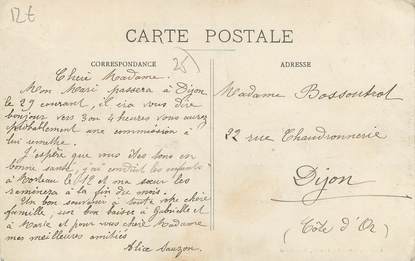 12€
CARTE POSTALE
CORRESPONDANCE
25
ADRESSE
Chère Madame,
Mon Mari passera à Dijon
le 29 courant, il ira vous dire
bonjour vers 3 ou 4 heures vous aurez
probablement une commission à
lui remettre.
J'espère que vous êtes tous en
bonne santé, j'ai conduit les enfants
à Morteau le 12 et ma sœur les
ramènera à la fin du mois.
Un bon souvenir à toute votre chère
famille, un bon baiser à Gabrielle et
à Marie et pour vous chère Madame
mes meilleures amitiés
Alice Sauzon.
Madame Bossoutrot
22 rue Chaudronnerie
Dijon
(Côte d'Or)